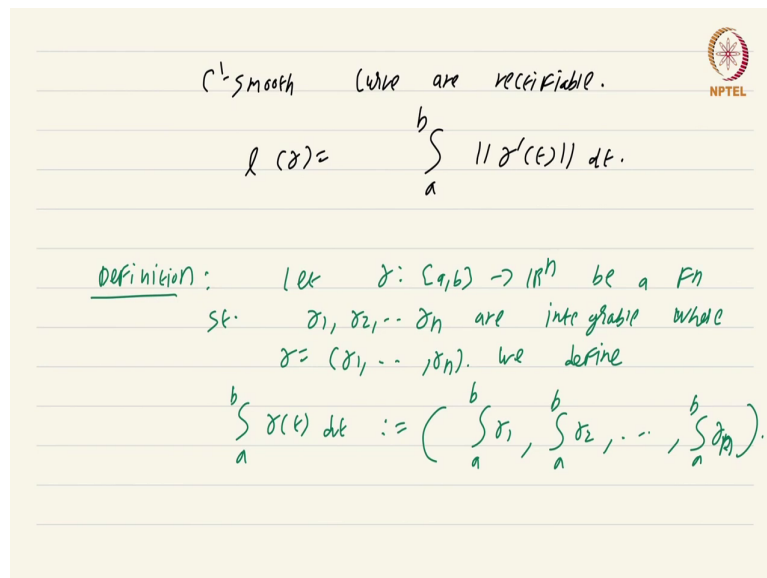 NPTEL
C¹-smooth curve are rectifiable.
l(γ) = ∫_a^b ||γ'(t)|| dt.
Definition: let γ: [a,b] -> ℝⁿ be a Fn
st. γ1, γ2, .. γn are integrable where
γ = (γ1, .. , γn). We define
∫_a^b γ(t) dt := ( ∫_a^b γ1, ∫_a^b γ2, . .. , ∫_a^b γn ).